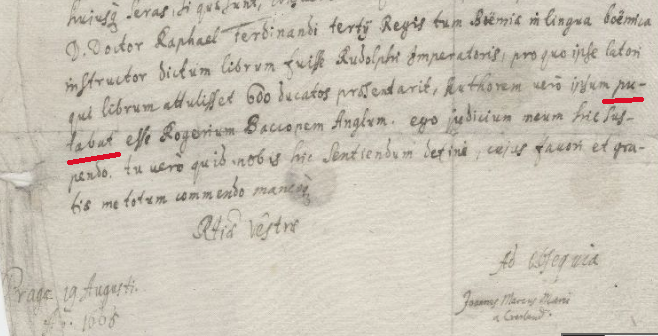 hujusq seras, si quæ sunt,
D. Doctor Raphael Ferdinandi tertij Regis tum Boëmiæ in lingua boëmica
instructor dictum librum fuisse Rudolphi Imperatoris, pro quo ipse latori
qui librum attulisset 600 ducatos præsentarit, Authorem verò ipsum pu-
tabat esse Rogerium Bacconem Anglum. ego judicium meum hic sus-
pendo. tu verò quid nobis hic sentiendum defini, cujus favori et gra-
tiæ me totum commendo maneoq
Rtiæ Vestræ
Ad Obsequia
Joannes Marcus Marci
a Cronland
Pragæ 19 Augusti